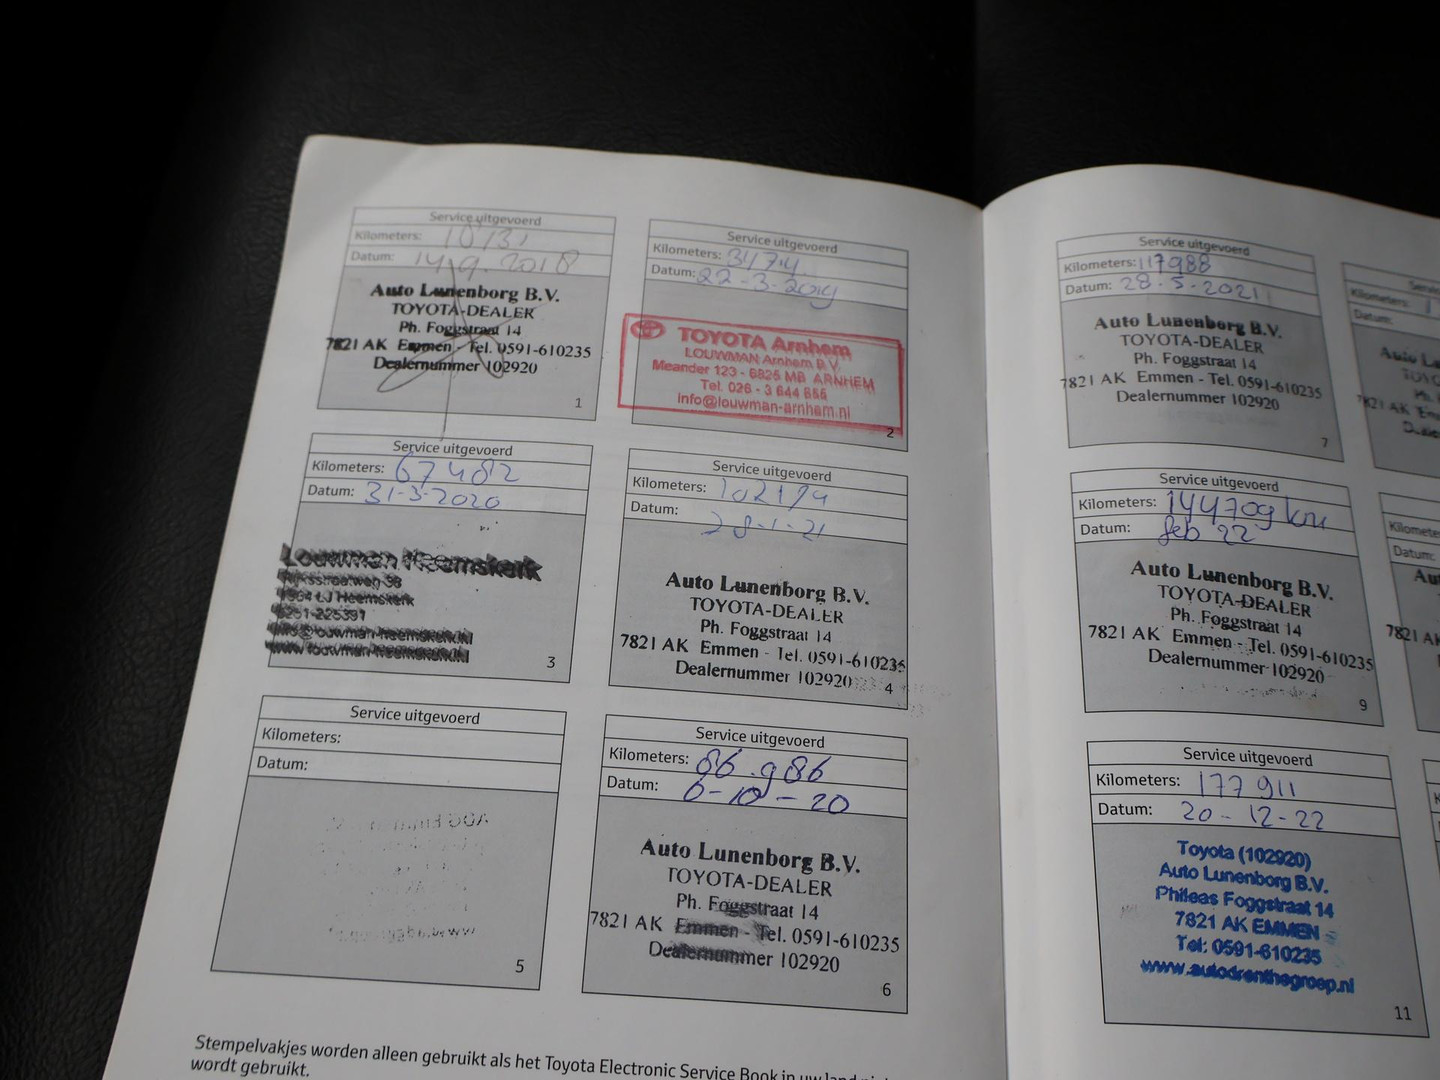 Service uitgevoerd
Kilometers:
Datum: 14.9.2018
Auto Lunenborg B.V.
TOYOTA-DEALER
Ph. Foggstraat 14
7821 AK Emmen - Tel. 0591-610235
Dealernummer 102920
1
Service uitgevoerd
Kilometers:
Datum: 22-3-2019
TOYOTA Arnhem
LOUWMAN Arnhem B.V.
Meander 123 - 6825 MB ARNHEM
Tel. 026 - 3 644 655
info@louwman-arnhem.nl
2
Service uitgevoerd
Kilometers: 67482
Datum: 31-3-2020
Louwman Heemskerk
3
Service uitgevoerd
Kilometers: 102174
Datum:
28-1-21
Auto Lunenborg B.V.
TOYOTA-DEALER
Ph. Foggstraat 14
7821 AK Emmen - Tel. 0591-610235
Dealernummer 102920
4
Service uitgevoerd
Kilometers:
Datum:
5
Service uitgevoerd
Kilometers: 86.986
Datum: 6-10-20
Auto Lunenborg B.V.
TOYOTA-DEALER
Ph. Foggstraat 14
7821 AK Emmen - Tel. 0591-610235
Dealernummer 102920
6
Stempelvakjes worden alleen gebruikt als het Toyota Electronic Service Book in uw land
wordt gebruikt.
Service uitgevoerd
Kilometers: 117988
Datum: 28.5-2021
Auto Lunenborg B.V.
TOYOTA-DEALER
Ph. Foggstraat 14
7821 AK Emmen - Tel. 0591-610235
Dealernummer 102920
7
Service uitgevoerd
Kilometers: 144709 km
Datum: feb 22
Auto Lunenborg B.V.
TOYOTA-DEALER
Ph. Foggstraat 14
7821 AK Emmen - Tel. 0591-610235
Dealernummer 102920
9
Service uitgevoerd
Kilometers: 177911
Datum: 20-12-22
Toyota (102920)
Auto Lunenborg B.V.
Phileas Foggstraat 14
7821 AK EMMEN
Tel: 0591-610235
www.autodrenthegroep.nl
11
Kilometers:
Datum: